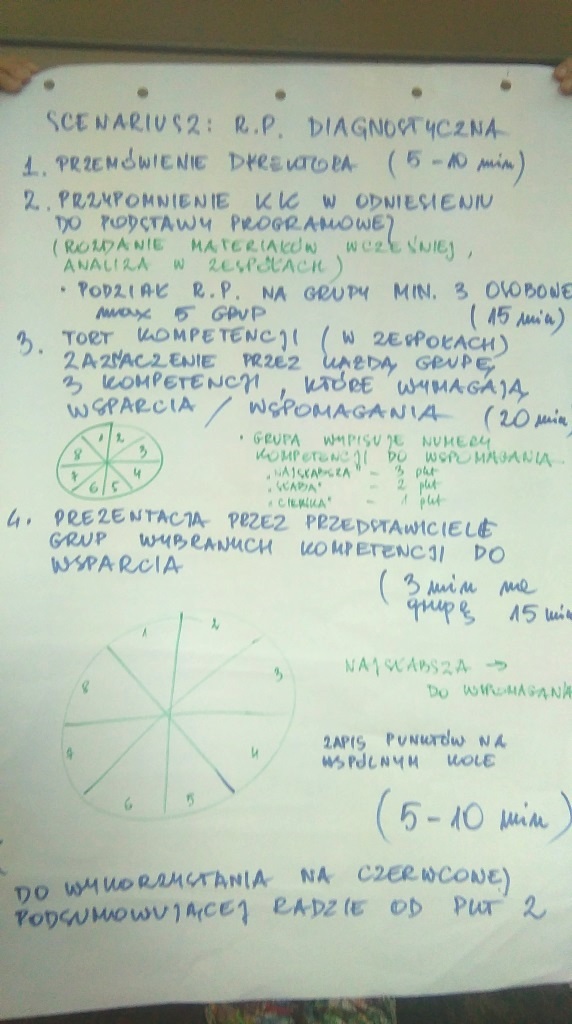 SCENARIUSZ: R.P. DIAGNOSTYCZNA
1. PRZEMÓWIENIE DYREKTORA (5-10 min)
2. PRZYPOMNIENIE KK W ODNIESIENIU
DO PODSTAWY PROGRAMOWEJ
(ROZDANIE MATERIAŁÓW WCZEŚNIEJ,
ANALIZA W ZESPOŁACH)
• PODZIAŁ R.P. NA GRUPY MIN. 3 OSOBOWE
max 5 GRUP (15 min)
3. TORT KOMPETENCJI (W ZESPOŁACH)
ZAZNACZENIE PRZEZ KAŻDĄ GRUPĘ
3 KOMPETENCJI, KTÓRE WYMAGAJĄ
WSPARCIA / WSPOMAGANIA (20 min)
1 2 3 4 5 6 7 8
• GRUPA WYPISUJE NUMERY
KOMPETENCJI DO WSPOMAGANIA
"NAJSŁABSZA" - 3 pkt
"SŁABA" - 2 pkt
"CIENKA" - 1 pkt
4. PREZENTACJA PRZEZ PRZEDSTAWICIELE
GRUP WYBRANYCH KOMPETENCJI DO
WSPARCIA
(3 min na
grupę 15 min
1 2 3 4 5 6 7 8
NAJSŁABSZA →
DO WSPOMAGANIA
ZAPIS PUNKTÓW NA
WSPÓLNYM KOLE
(5-10 min)
DO WYKORZYSTANIA NA CZERWCOWEJ
PODSUMOWUJĄCEJ RADZIE OD PKT 2